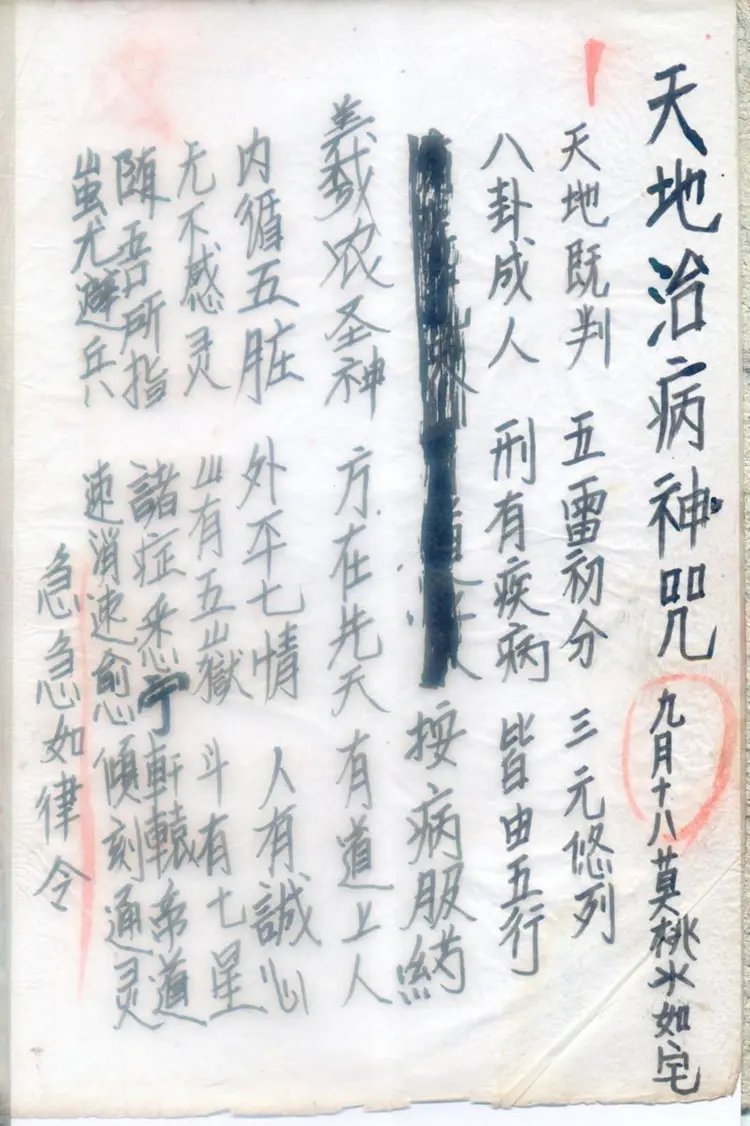 天地治病神咒 九月十八莫桃水如宅
天地既判 五雷初分 三元悠列
八卦成人 刑有疾病 皆由五行
按病服药
羲农圣神 方在先天 有道上人
内循五脏 外平七情 人有誠心
无不感灵 山有五嶽 斗有七星
随吾所指 諸症悉宁 軒轅帝道
蚩尤避兵 速消速愈 傾刻通灵
急急如律令